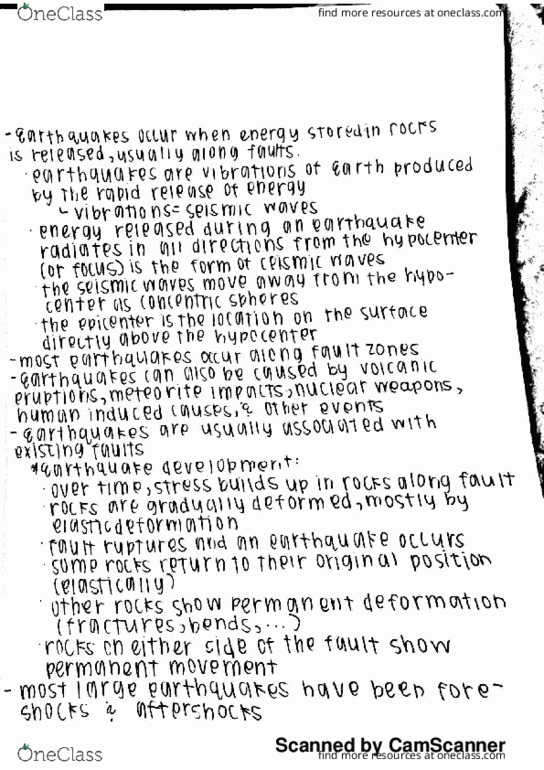 OneClass
find more resources at oneclass.com
- Earthquakes occur when energy stored in rocks
is released, usually along faults.
· earthquakes are vibrations of Earth produced
by the rapid release of energy
└ vibrations = seismic waves
· energy released during an earthquake
radiates in all directions from the hypocenter
(or focus) is the form of ceismic waves
· the seismic waves move away from the hypo-
center as concentric spheres
· the epicenter is the location on the surface
directly above the hypocenter
- most earthquakes occur along fault zones
- Earthquakes can also be caused by volcanic
eruptions, meteorite impacts, nuclear weapons,
human induced causes, & other events
- Earthquakes are usually associated with
existing faults
*Earthquake development:
· over time, stress builds up in rocks along fault
· rocks are gradually deformed, mostly by
elastic deformation
· fault ruptures and an earthquake occurs
· some rocks return to their original position
(elastically)
· other rocks show permanent deformation
(fractures, bends, ...)
· rocks on either side of the fault show
permanent movement
- most large earthquakes have been fore-
shocks & aftershocks
Scanned by CamScanner
OneClass
find more resources at oneclass.com